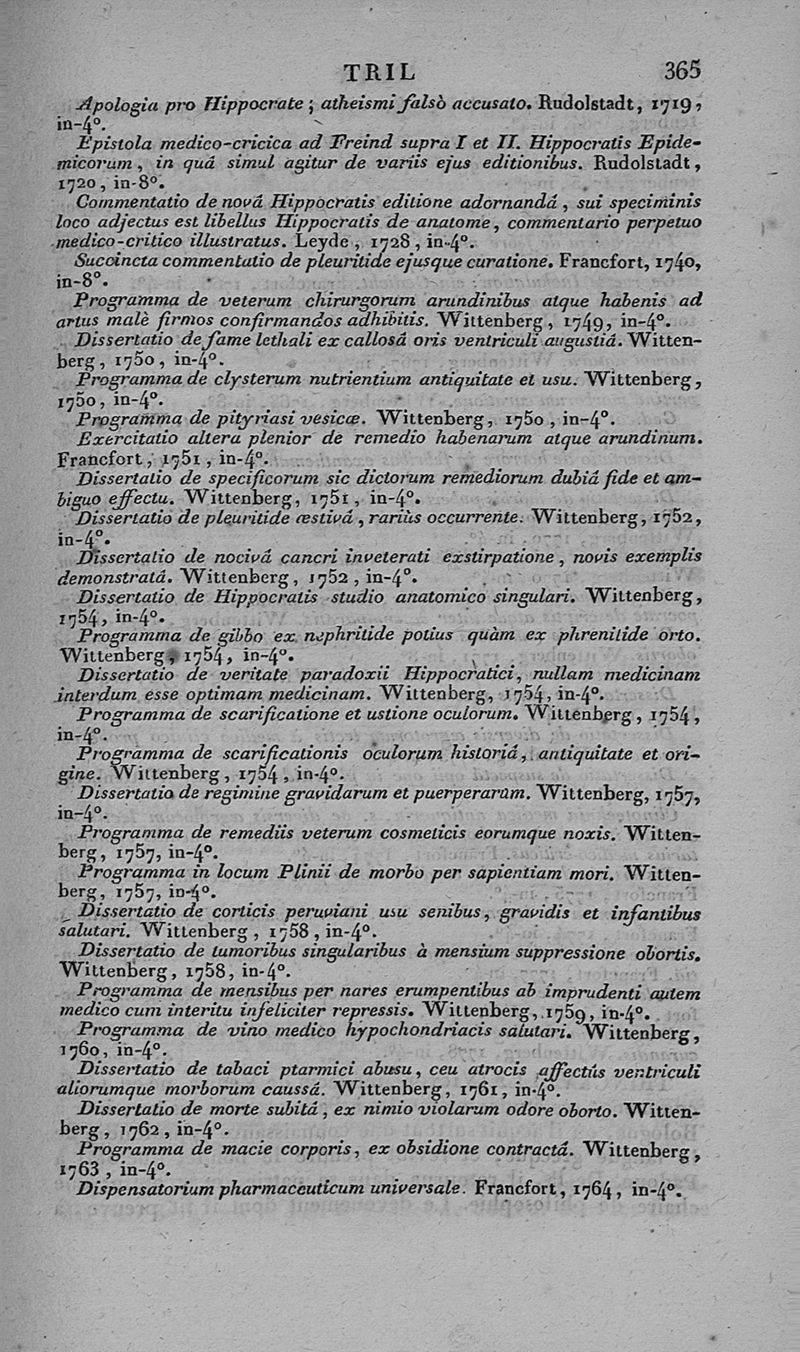 TRIL 365
Apologia pro Hippocrate ; atheismi falsò accusato. Rudolstadt, 1719,
in-4°.
Epistola medico-cricica ad Freind supra I et II. Hippocratis Epide-
micorum, in quâ simul agitur de variis ejus editionibus. Rudolstadt,
1720, in-8°.
Commentatio de novâ Hippocratis editione adornandâ, sui speciminis
loco adjectus est libellus Hippocratis de anatome, commentario perpetuo
medico-critico illustratus. Leyde, 1728, in-4°.
Succincta commentatio de pleuritide ejusque curatione. Francfort, 1740,
in-8°.
Programma de veterum chirurgorum arundinibus atque habenis ad
artus malè firmos confirmandos adhibitis. Wittenberg, 1749, in-4°.
Dissertatio de fame lethali ex callosâ oris ventriculi augustiâ. Witten-
berg, 1750, in-4°.
Programma de clysterum nutrientium antiquitate et usu. Wittenberg,
1750, in-4°.
Programma de pityriasi vesicæ. Wittenberg, 1750, in-4°.
Exercitatio altera plenior de remedio habenarum atque arundinum.
Francfort, 1751, in-4°.
Dissertatio de specificorum sic dictorum remediorum dubiâ fide et am-
biguo effectu. Wittenberg, 1751, in-4°.
Dissertatio de pleuritide æstivâ, rariùs occurrente. Wittenberg, 1752,
in-4°.
Dissertatio de nocivâ cancri inveterati exstirpatione, novis exemplis
demonstratâ. Wittenberg, 1752, in-4°.
Dissertatio de Hippocratis studio anatomico singulari. Wittenberg,
1754, in-4°.
Programma de gibbo ex nephritide potius quàm ex phrenitide orto.
Wittenberg, 1754, in-4°.
Dissertatio de veritate paradoxii Hippocratici, nullam medicinam
interdum esse optimam medicinam. Wittenberg, 1754, in-4°.
Programma de scarificatione et ustione oculorum. Wittenberg, 1754,
in-4°.
Programma de scarificationis oculorum historiâ, antiquitate et ori-
gine. Wittenberg, 1754, in-4°.
Dissertatio de regimine gravidarum et puerperarum. Wittenberg, 1757,
in-4°.
Programma de remediis veterum cosmeticis eorumque noxis. Witten-
berg, 1757, in-4°.
Programma in locum Plinii de morbo per sapientiam mori. Witten-
berg, 1757, in-4°.
Dissertatio de corticis peruviani usu senibus, gravidis et infantibus
salutari. Wittenberg, 1758, in-4°.
Dissertatio de tumoribus singularibus à mensium suppressione obortis.
Wittenberg, 1758, in-4°.
Programma de mensibus per nares erumpentibus ab imprudenti autem
medico cum interitu infeliciter repressis. Wittenberg, 1759, in-4°.
Programma de vino medico hypochondriacis salutari. Wittenberg,
1760, in-4°.
Dissertatio de tabaci ptarmici abusu, ceu atrocis affectûs ventriculi
aliorumque morborum caussâ. Wittenberg, 1761, in-4°.
Dissertatio de morte subitâ, ex nimio violarum odore oborto. Witten-
berg, 1762, in-4°.
Programma de macie corporis, ex obsidione contractâ. Wittenberg,
1763, in-4°.
Dispensatorium pharmaceuticum universale. Francfort, 1764, in-4°.